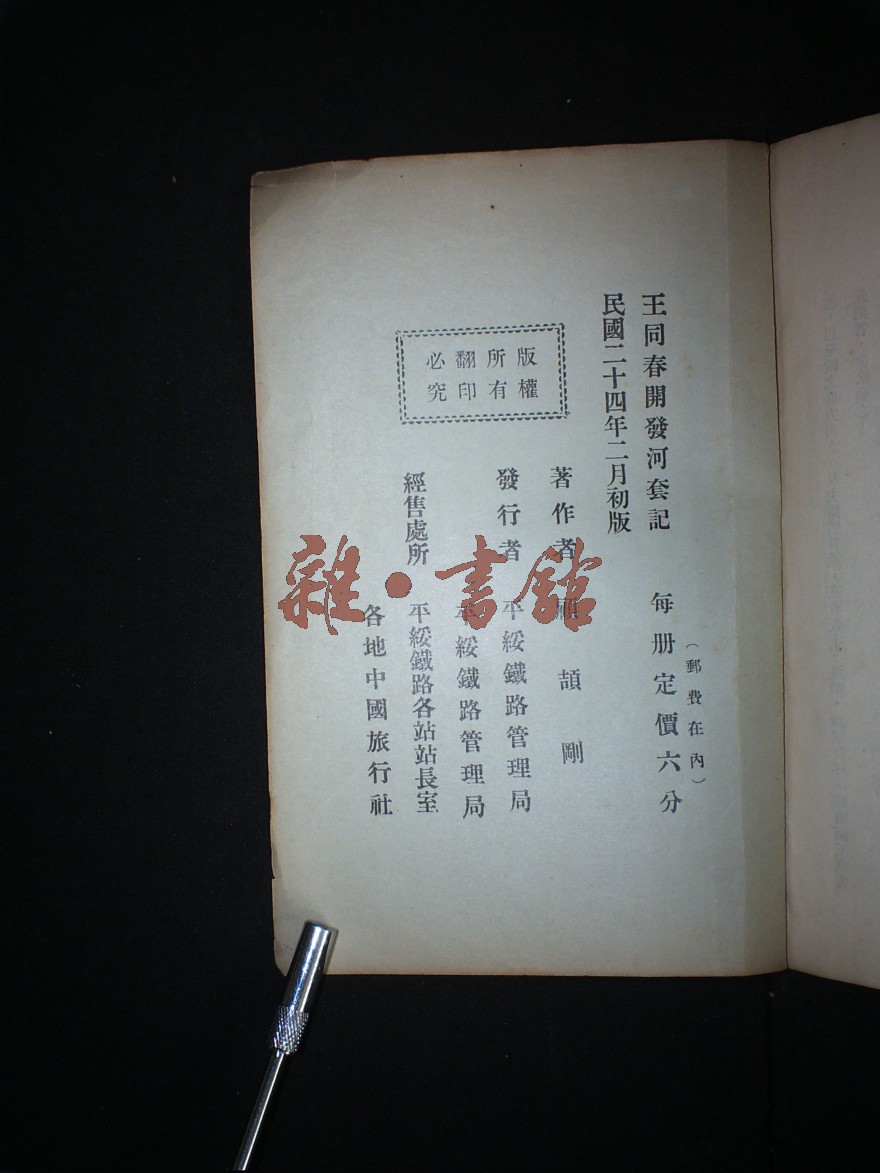 王同春開發河套記
每册定價六分
(郵費在內)
民國二十四年二月初版
版權
所有
翻印
必究
著作者 顧頡剛
發行者 平綏鐵路管理局
經售處所
平綏鐵路管理局
平綏鐵路各站站長室
各地中國旅行社
雜·書館